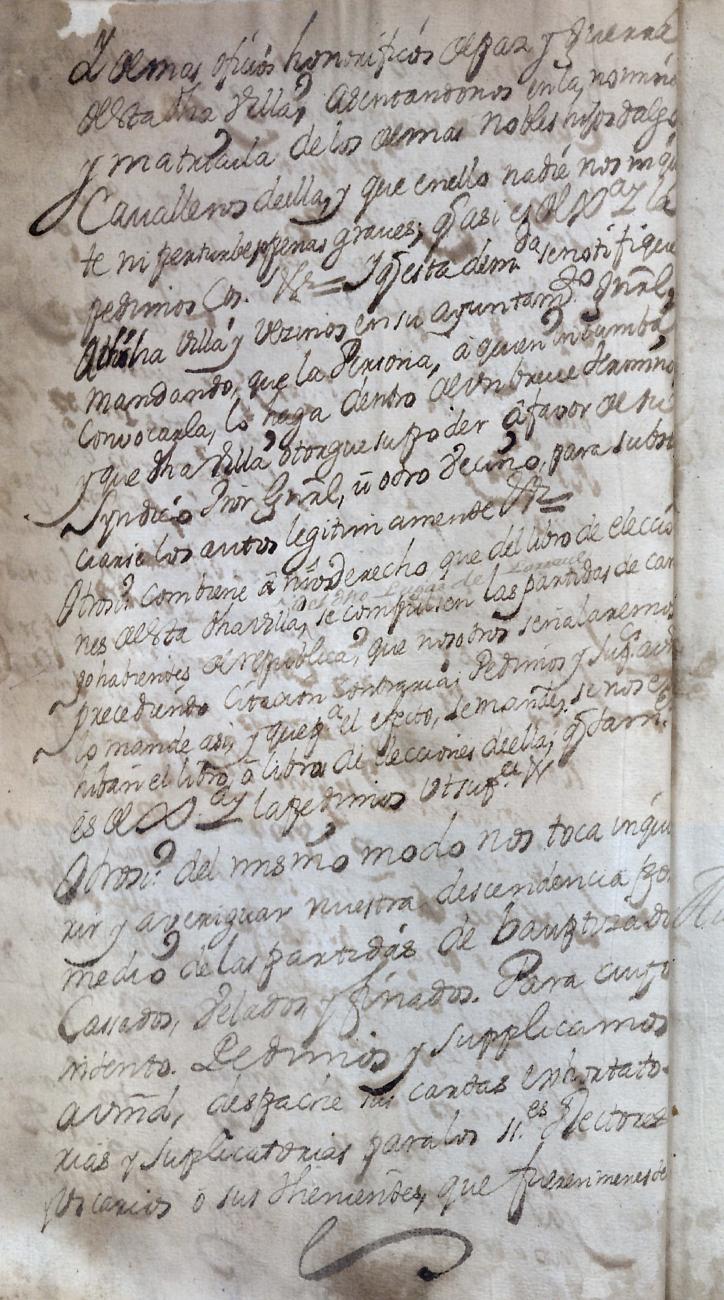 Y demas oficios honorificos de paz y guerra
de esta dha Villa, asentandonos en la nomina
y matricula de los demas nobles hijosdalgo
Cavalleros de ella, y que en ello nadie nos inqui
te ni perturbe penas graves; q̃ asi es de la
pedimos Cos. Y q̃ esta demda se notifique
dha villa y vezinos en su ayuntamto Gñral,
mandando, que la Persona, a quien incumba,
Convocarla, lo haga dentro de un breve termino,
y que dha Villa otorgue su poder â favor de su
Syndico Pror Gñral, ũ otro Vecino, para substan
ciarse los autos legitimamente
Otrosi: combiene â nr̃o derecho que del libro de eleccio
nes de esta dha villa, se compulsen las partidas de car
gohabientes de republica, que nosotros señalaremos
precediendo Citacion Contraria; Pedimos y supcamos
lo mande asi, y que pa el efecto, se mande, se nos e
hiban el libro, â libros de elecciones de ella; q̃
es de y la pedimos Ut supra
Otrosi: del mismo modo nos toca inqui
rir y averiguar nuestra descendencia por
medio de las partidas de bauptizados
Cassados, Velados y finados. Para cuyo
intento. Pedimos y supplicamos
a vmd, despache sus cartas exhortato-
rias y suplicatorias para los ss.es Rectores
Vicarios o sus thenientes, que fueren menester